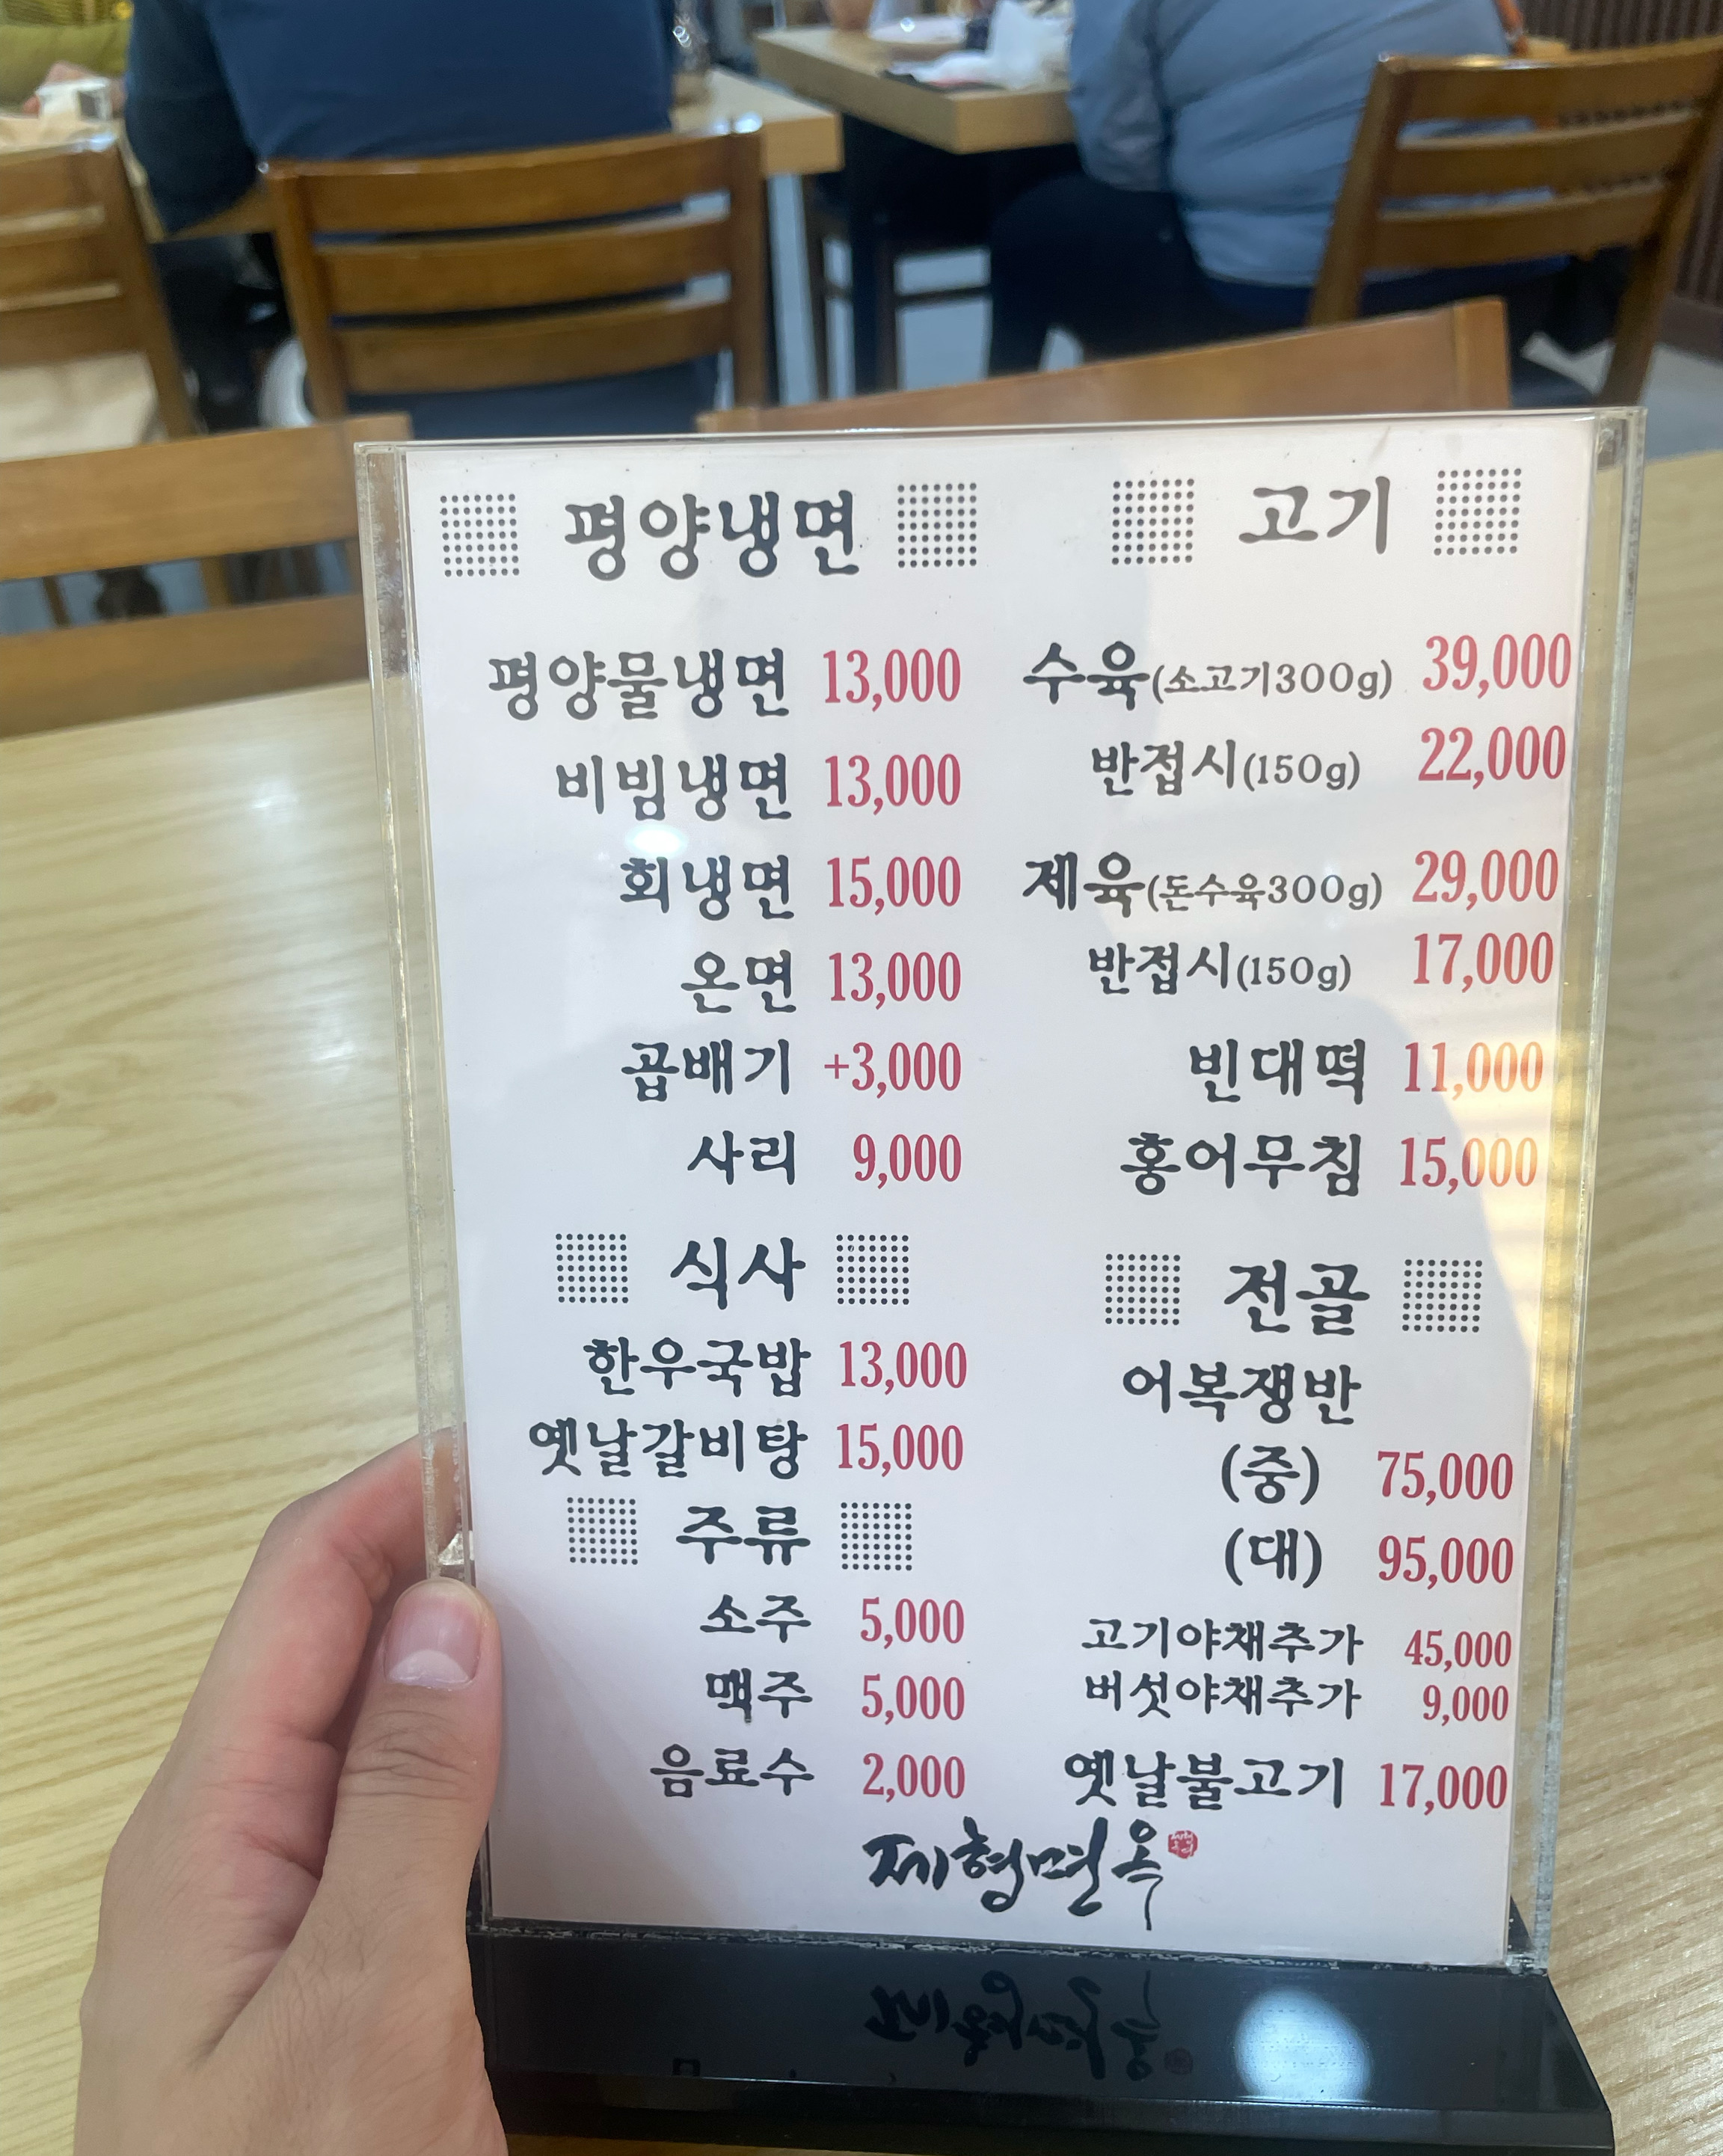 평양냉면
평양물냉면 13,000
비빔냉면 13,000
회냉면 15,000
온면 13,000
곱배기 +3,000
사리 9,000
식사
한우국밥 13,000
옛날갈비탕 15,000
주류
소주 5,000
맥주 5,000
음료수 2,000
고기
수육(소고기300g) 39,000
반접시(150g) 22,000
제육(돈수육300g) 29,000
반접시(150g) 17,000
빈대떡 11,000
홍어무침 15,000
전골
어복쟁반
(중) 75,000
(대) 95,000
고기야채추가 45,000
버섯야채추가 9,000
옛날불고기 17,000
제형면옥